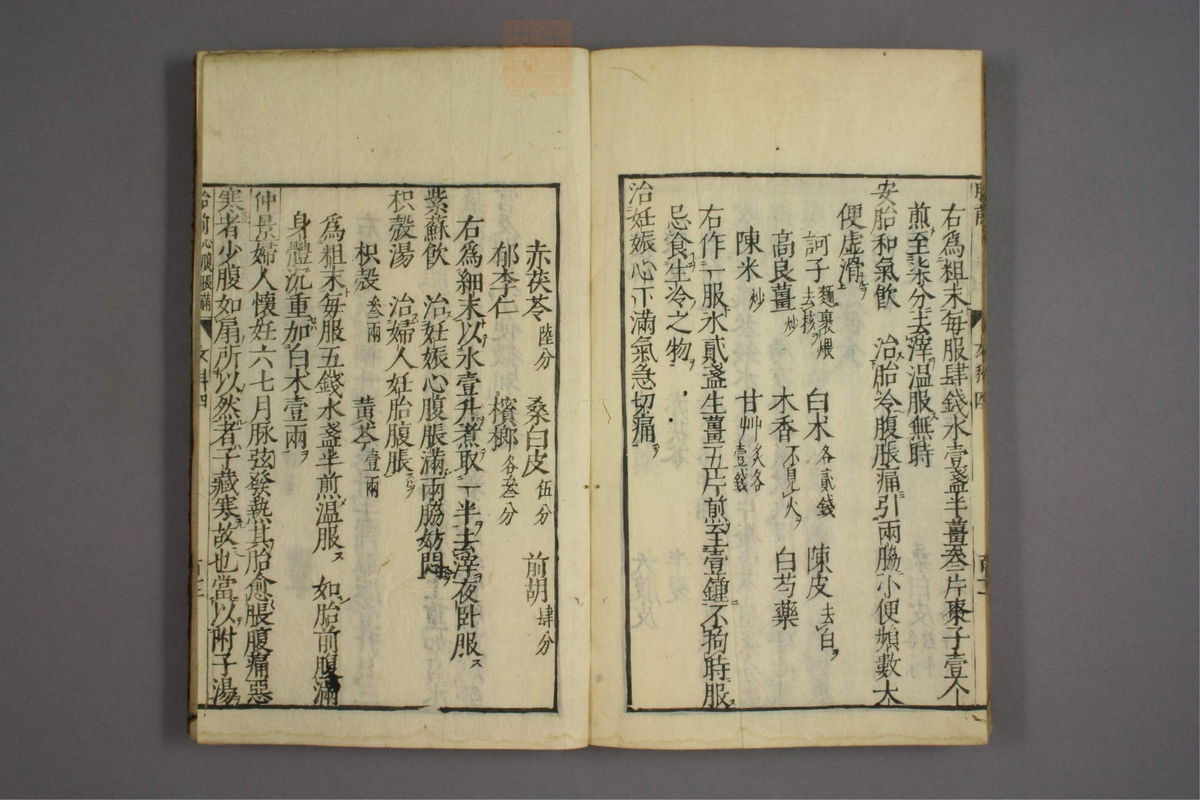 右爲粗末每服肆錢水壹盞半薑叁片棗子壹个
煎至柒分去滓温服無時
安胎和氣飲　治胎冷腹脹痛引兩脇小便頻數大
便虚滑
訶子 麵裹煨去核　白术 各貳錢　陳皮 去白
高良薑 炒　木香 不見火　白芍藥
陳米 炒　甘艸 炙各壹錢
右作一服水貳盞生薑五片煎至壹鍾不拘時服
忌食生冷之物
治妊娠心下滿氣急切痛
赤茯苓 陸分　桑白皮 伍分　前胡 肆分
郁李仁　檳榔 各叁分
右爲細末以水壹升煮取一半去滓夜卧服
紫蘇飲　治妊娠心腹脹滿兩脇妨悶
枳殼湯　治婦人妊胎腹脹
枳殼 叁兩　黄芩 壹兩
爲粗末每服五錢水盞半煎温服　如胎前腹滿
身體沉重加白术壹兩
仲景婦人懷妊六七月脉弦發熱其胎愈脹腹痛惡
寒者少腹如扇所以然者子藏寒故也當以附子湯